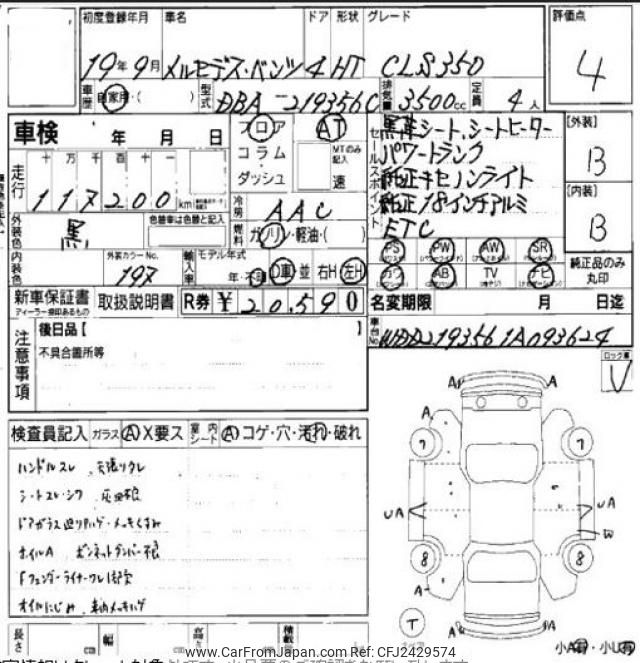 初度登録年月 車名 ドア 形状 グレード 評価点
19年9月 メルセデス・ベンツ 4 HT CLS350 4
車歴 自家用・( ) 型式 DBA-219356C 排気量 3500cc 定員 4人
車検 年 月 日
フロア AT
コラム・ MTのみ記入
ダッシュ 速
セールスポイント
黒革シート、シートヒーター
パワートランク
純正キセノンライト
純正18インチアルミ
ETC
[外装]
B
[内装]
B
走行 十 万 千 百 十 一
117200km
冷房 AAC
燃料 ガソリン・軽油・( )
外装色 黒 色替車は色替と記入
内装色 外装カラーNo. 197
輸入車 モデル年式 年・不明 D車 並 右H 左H
PS PW AW SR
カワ AB TV ナビ
純正品のみ丸印
新車保証書 取扱説明書 R券 ¥20,590
ディーラー捺印あるもの
名変期限 月 日迄
車台No. WDD2193561A093624
注意事項
後日品【 】
不具合箇所等
検査員記入 ガラス A X要ス 室内シート A コゲ・穴・汚れ・破れ
ハンドルスレ 天張りクレ
シートスレ・シワ 灰皿不良
ホイルA ボンネットダンパー不良
オイルにじみ
A A
A A
7 7
UA UA
W
8 8
A A
T
長さ cm 幅 cm 高さ 積載
www.CarFromJapan.com Ref: CFJ2429574